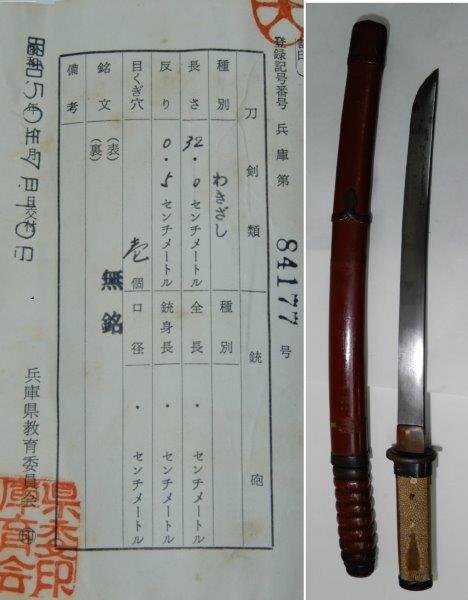 登録記号番号 兵庫第 84177 号
刀剣類
銃砲
種別 わきざし
種別
長さ 32.0センチメートル
全長 ・ センチメートル
反り 0.5センチメートル
銃身長 ・ センチメートル
目くぎ穴 壱個
口径 ・ センチメートル
銘文 (表) 無銘
(裏)
備考
昭和50年7月10日交付
兵庫県教育委員会 印